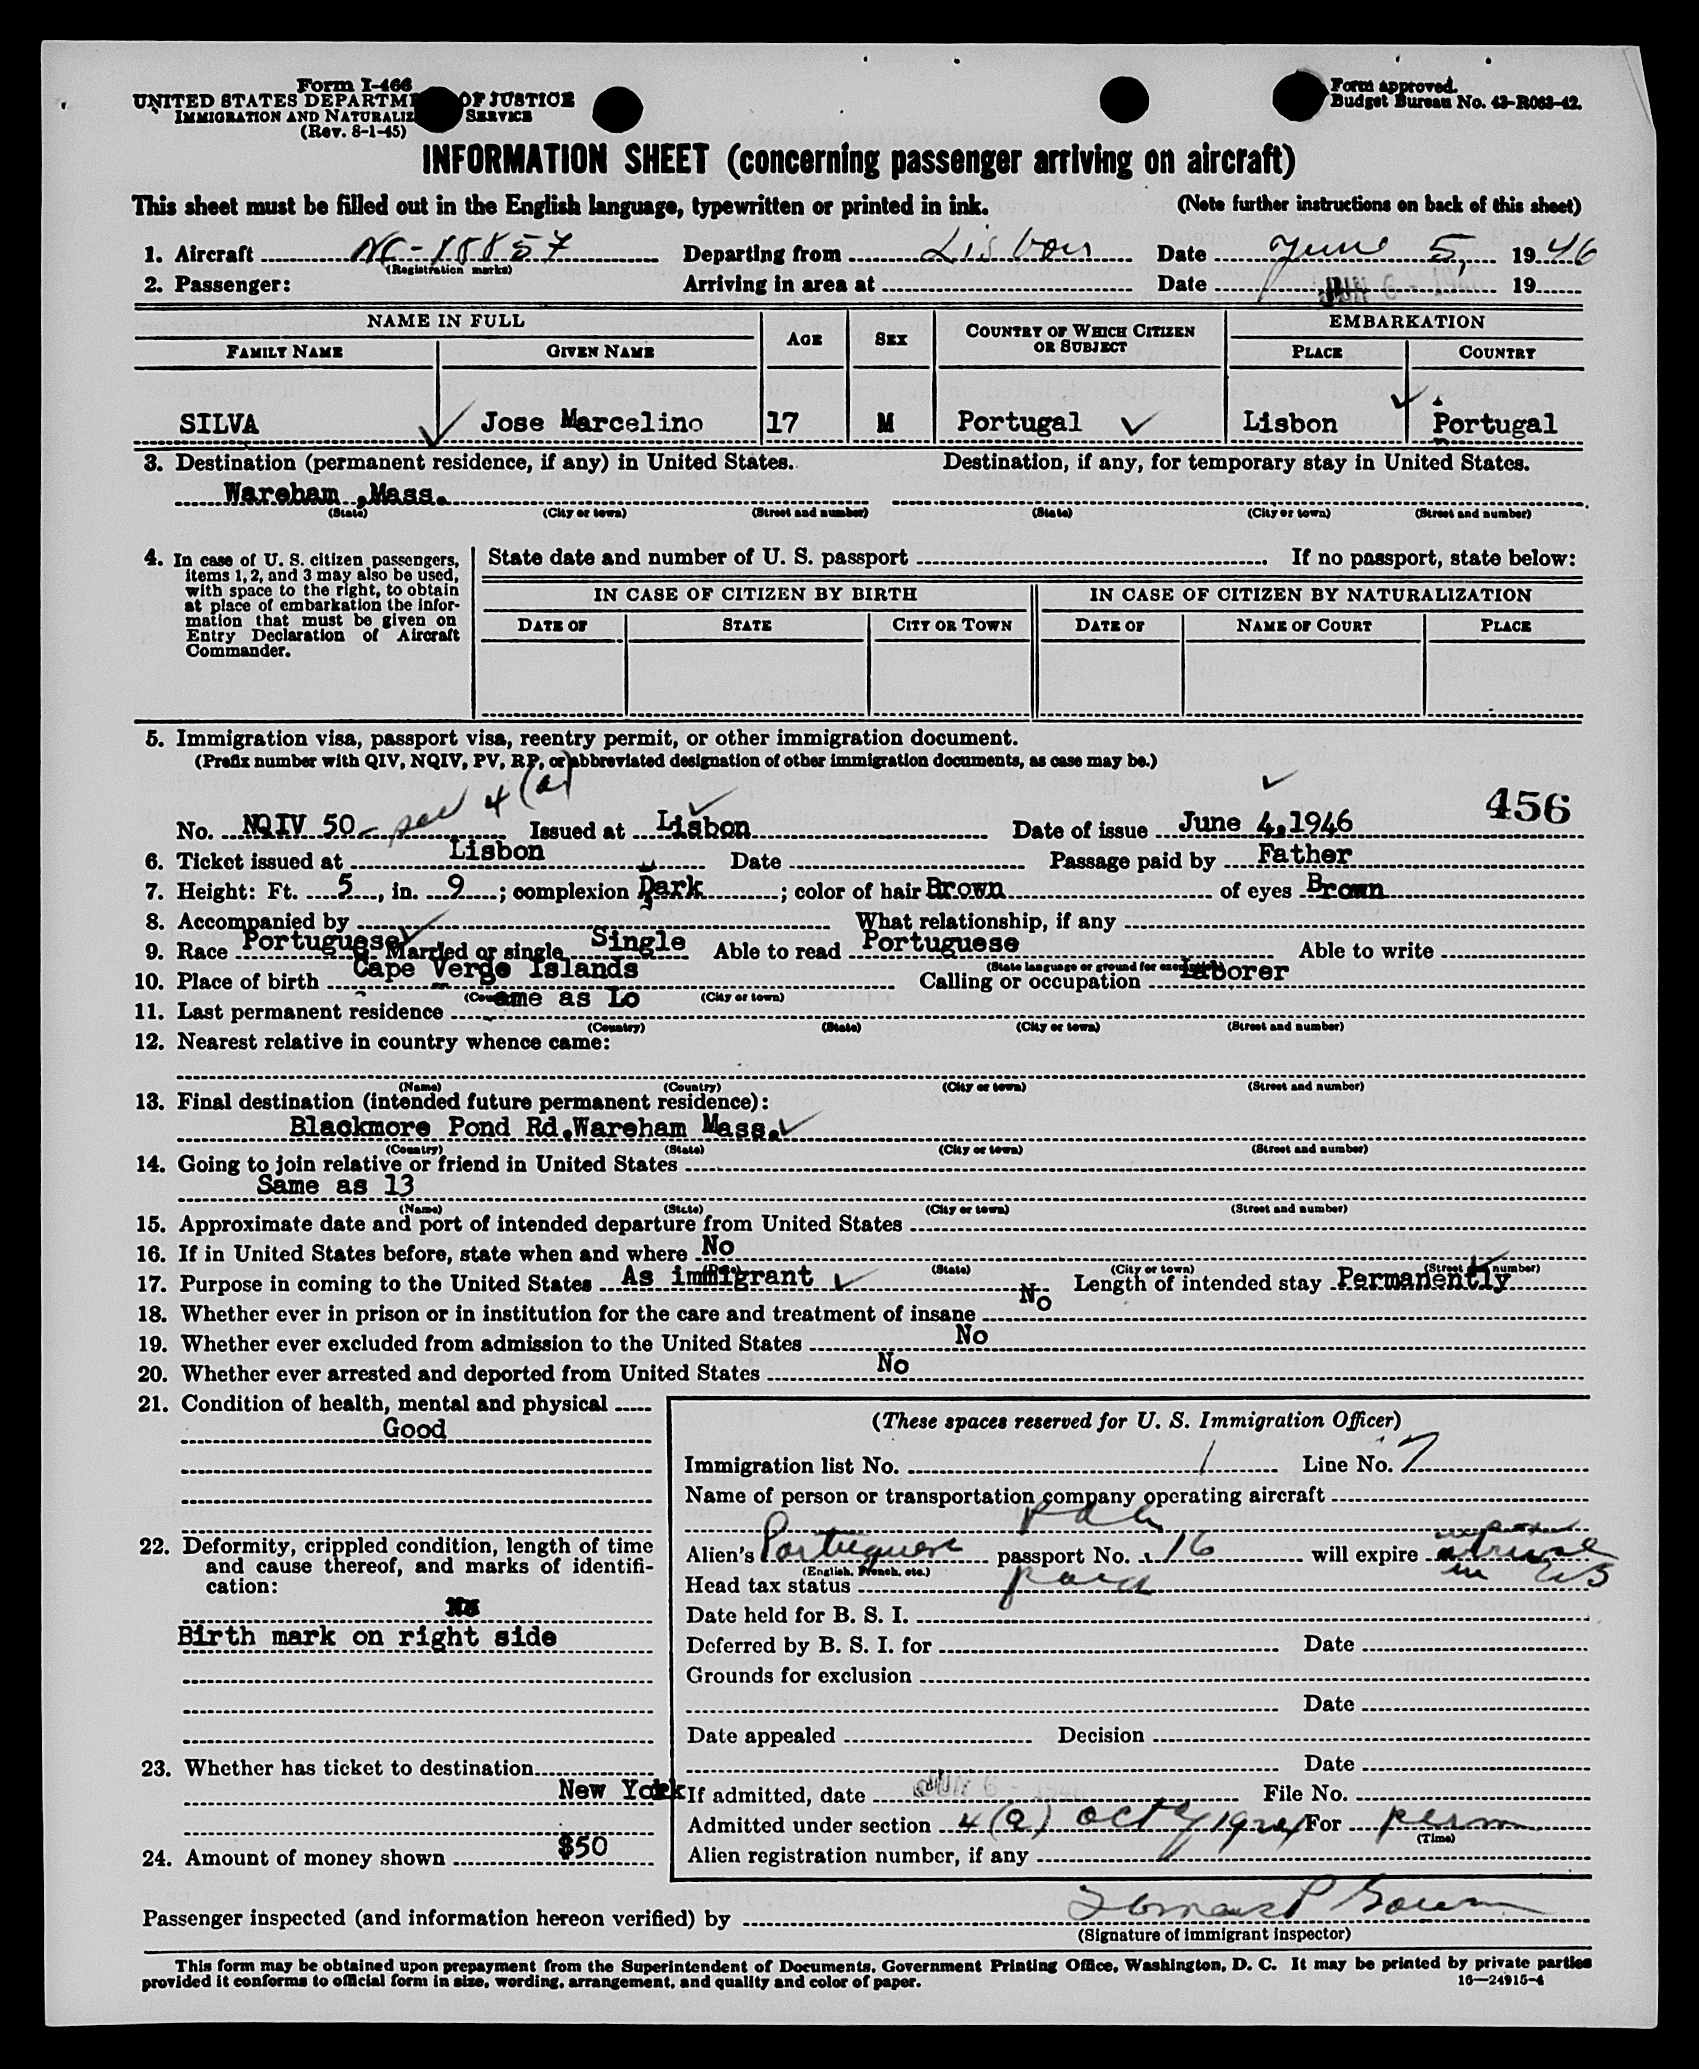 Form I-466
UNITED STATES DEPARTM OF JUSTICE
IMMIGRATION AND NATURALIZ SERVICE
(Rev. 8-1-45)
Form approved.
Budget Bureau No. 43-R063-42.
INFORMATION SHEET (concerning passenger arriving on aircraft)
This sheet must be filled out in the English language, typewritten or printed in ink. (Note further instructions on back of this sheet)
1. Aircraft NC-18857 Departing from Lisbon Date June 5, 1946
(Registration marks)
2. Passenger: Arriving in area at Date 19
NAME IN FULL AGE SEX COUNTRY OF WHICH CITIZEN OR SUBJECT EMBARKATION
FAMILY NAME GIVEN NAME PLACE COUNTRY
SILVA Jose Marcelino 17 M Portugal Lisbon Portugal
3. Destination (permanent residence, if any) in United States. Destination, if any, for temporary stay in United States.
Wareham ,Mass.
(State) (City or town) (Street and number) (State) (City or town) (Street and number)
4. In case of U. S. citizen passengers, items 1, 2, and 3 may also be used, with space to the right, to obtain at place of embarkation the information that must be given on Entry Declaration of Aircraft Commander.
State date and number of U. S. passport If no passport, state below:
IN CASE OF CITIZEN BY BIRTH IN CASE OF CITIZEN BY NATURALIZATION
DATE OF STATE CITY OR TOWN DATE OF NAME OF COURT PLACE
5. Immigration visa, passport visa, reentry permit, or other immigration document.
(Prefix number with QIV, NQIV, PV, RP, or abbreviated designation of other immigration documents, as case may be.)
No. NQIV 50 4(a) Issued at Lisbon Date of issue June 4,1946 456
6. Ticket issued at Lisbon Date Passage paid by Father
7. Height: Ft. 5, in. 9; complexion Dark; color of hair Brown of eyes Brown
8. Accompanied by What relationship, if any
9. Race Portuguese Married or single Single Able to read Portuguese Able to write
(State language or ground for exemption)
10. Place of birth Cape Verde Islands Calling or occupation Laborer
(Country) (City or town)
11. Last permanent residence ame as Lo
(Country) (State) (City or town) (Street and number)
12. Nearest relative in country whence came:
(Name) (Country) (City or town) (Street and number)
13. Final destination (intended future permanent residence):
Blackmore Pond Rd.Wareham Mass.
(Country) (State) (City or town) (Street and number)
14. Going to join relative or friend in United States
Same as 13
(Name) (State) (City or town) (Street and number)
15. Approximate date and port of intended departure from United States
16. If in United States before, state when and where No
(State) (City or town) (Street and number)
17. Purpose in coming to the United States As immigrant Length of intended stay Permanently
18. Whether ever in prison or in institution for the care and treatment of insane No
19. Whether ever excluded from admission to the United States No
20. Whether ever arrested and deported from United States No
21. Condition of health, mental and physical
Good
22. Deformity, crippled condition, length of time
and cause thereof, and marks of identifi-
cation:
No
Birth mark on right side
23. Whether has ticket to destination
New York
24. Amount of money shown $50
(These spaces reserved for U. S. Immigration Officer)
Immigration list No. 1 Line No. 7
Name of person or transportation company operating aircraft
P A A
Alien's Portuguese passport No. 16 will expire
(English, French, etc.)
in US
Head tax status paid
Date held for B. S. I.
Deferred by B. S. I. for Date
Grounds for exclusion
Date
Date appealed Decision
Date
If admitted, date File No.
Admitted under section 4(a) act of 1924 For perm
(Time)
Alien registration number, if any
Passenger inspected (and information hereon verified) by Thomas P
(Signature of immigrant inspector)
This form may be obtained upon prepayment from the Superintendent of Documents, Government Printing Office, Washington, D. C. It may be printed by private parties
provided it conforms to official form in size, wording, arrangement, and quality and color of paper. 16—24915-4